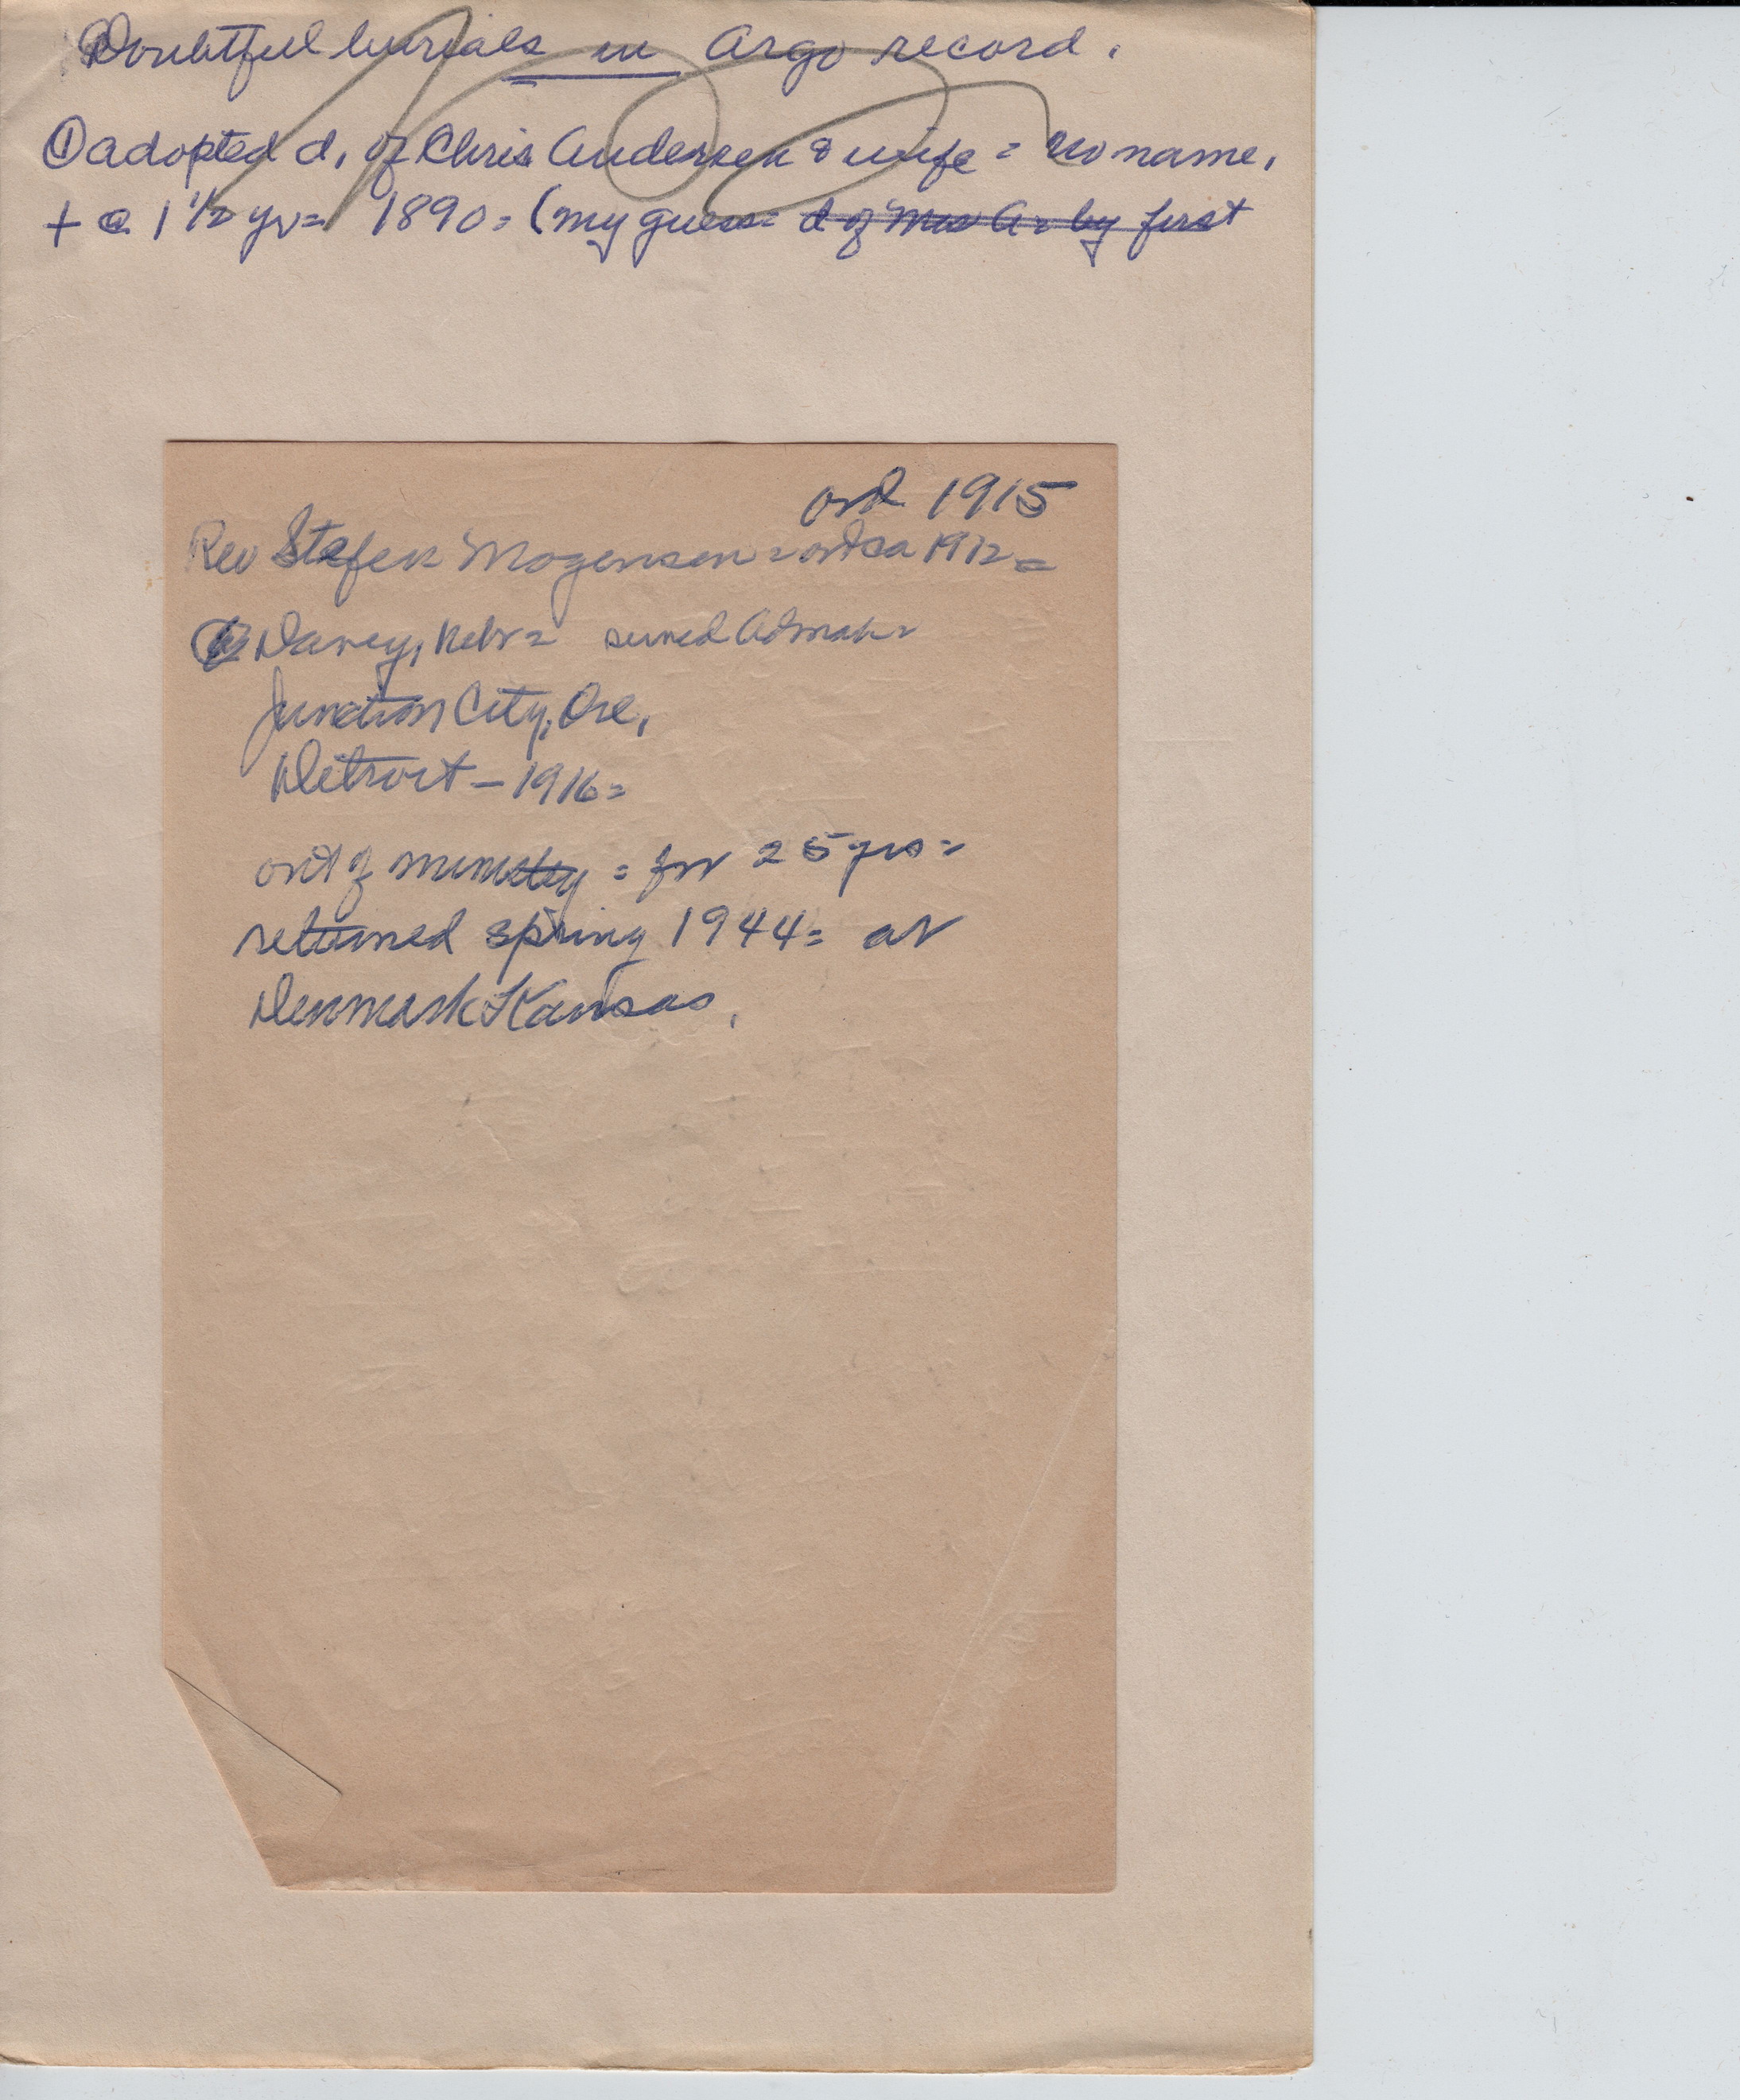 Doubtful burials in Argo record.
① adopted d. of Chris Andersen & wife = no name,
+ @ 1 1/2 yr = 1890 = (my guess = d of Mrs A = by first
ord 1915
Rev Stefen Mogensen = ord ca 1912 =
Davey, Nebr = served Admah =
Junction City, Ore,
Detroit – 1916 =
out of ministry = for 25 yrs =
returned spring 1944 = at
Denmark Kansas,